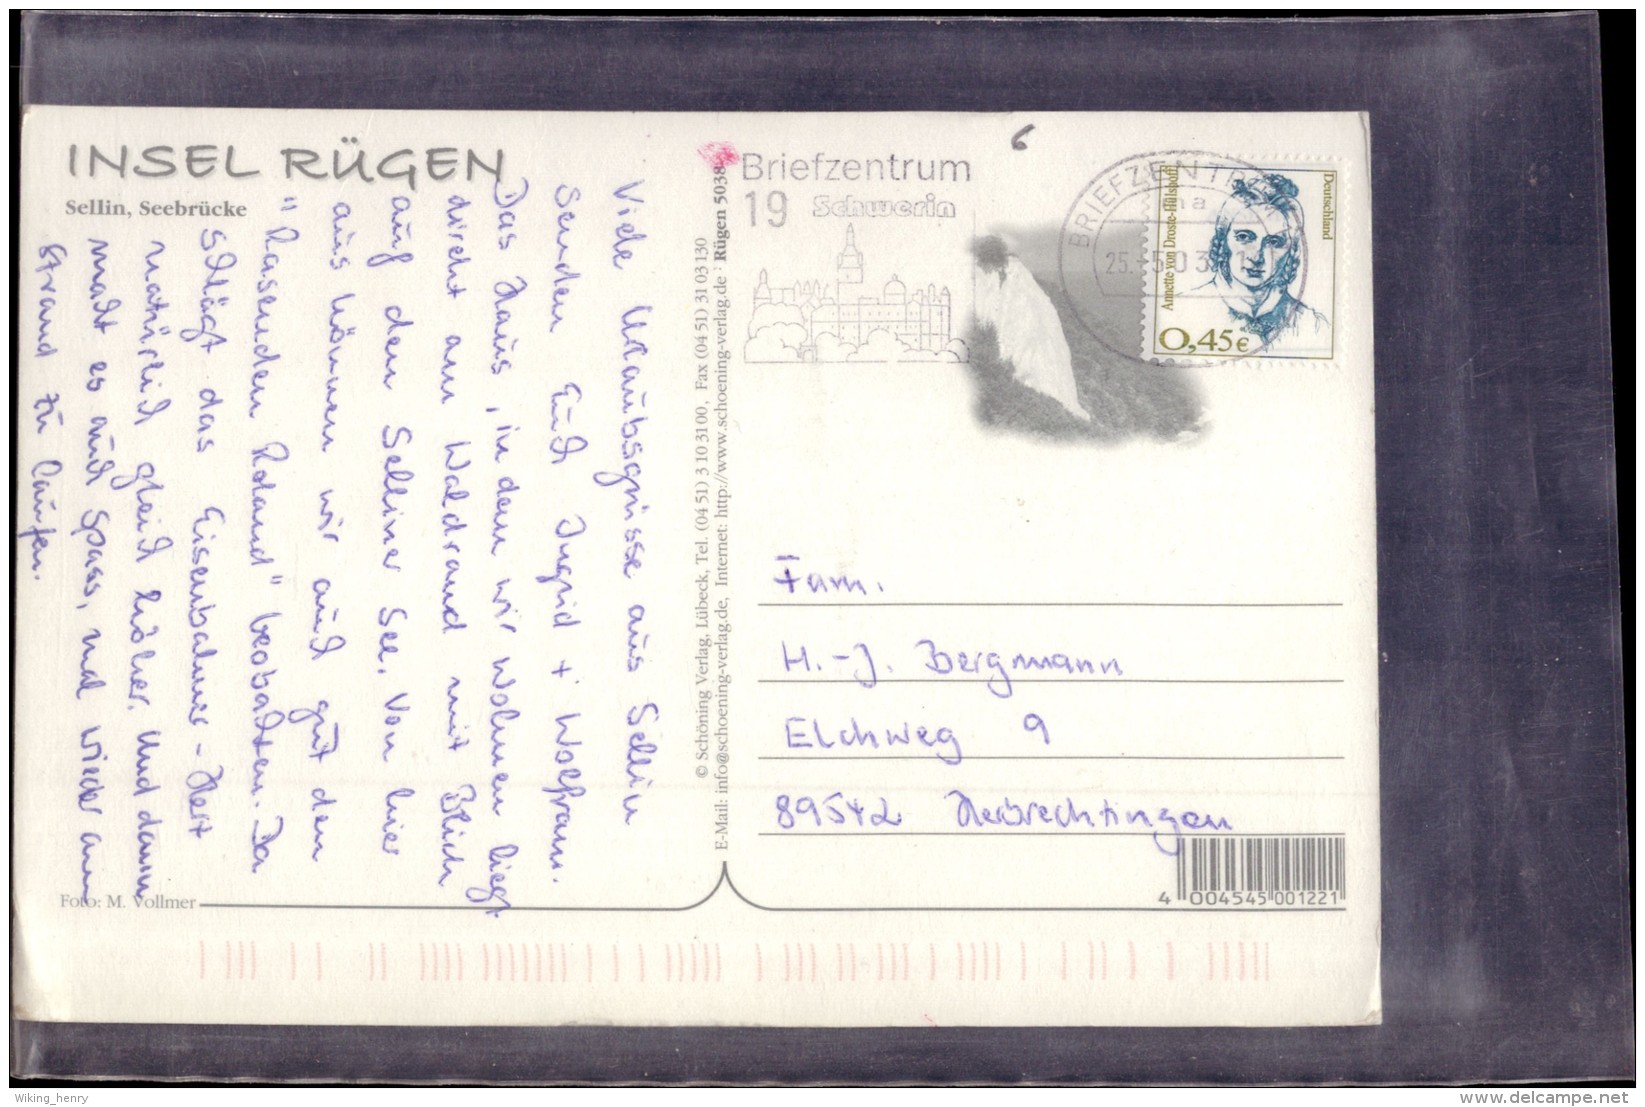 INSEL RÜGEN
Sellin, Seebrücke
Viele Uraubsgrüsse aus Sellin
senden Euch Ingrid + Wolfram.
Das Haus, in dem wir wohnen liegt
direkt am Waldrand mit Blick
auf den Selliner See. Von hier
aus können wir auch gut den
"Rasenden Roland" beobachten. Da
schlägt das Eisenbahner-Herz
natürlich gleich höher. Und dann
macht es auch Spass, mal wieder am
Strand zu laufen.
Foto: M. Vollmer
© Schöning Verlag, Lübeck, Tel. (04 51) 3 10 3100, Fax (04 51) 31 03 130
E-Mail: info@schoening-verlag.de, Internet: http://www.schoening-verlag.de · Rügen 5038
Briefzentrum
19 Schwerin
6
BRIEFZENTR
ma
25.-5.03
Deutschland
Annette von Droste-Hülshoff
0,45€
Fam.
H.-J. Bergmann
Elchweg 9
89542 Herbrechtingen
4 004545 001221
Wiking_henry
www.delcampe.net